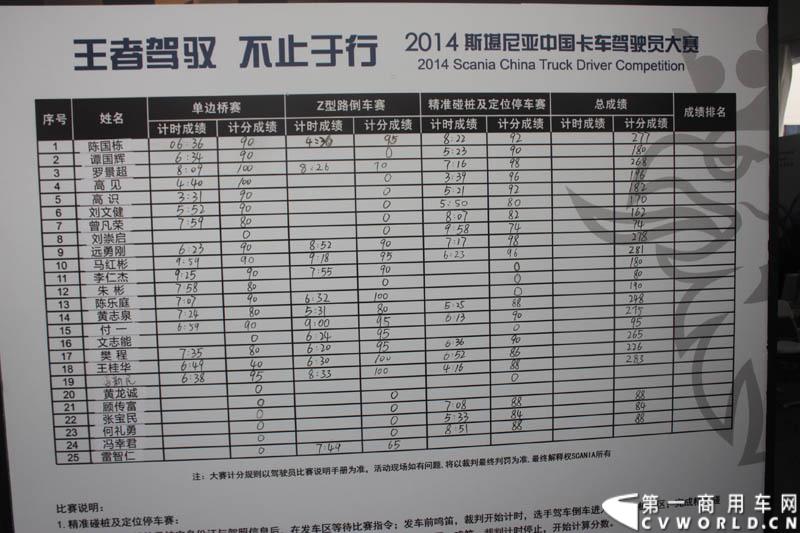 王者驾驭 不止于行 2014 斯堪尼亚中国卡车驾驶员大赛
2014 Scania China Truck Driver Competition
序号 姓名 单边桥赛 Z型路倒车赛 精准碰桩及定位停车赛 总成绩 成绩排名
计时成绩 计分成绩 计时成绩 计分成绩 计时成绩 计分成绩 计时成绩 计分成绩
1 陈国栋 06:36 90 95 8:22 92 277
2 谭国辉 6:34 90 0 5:23 90 180
3 罗景超 8:09 100 8:26 70 7:16 98 268
4 高见 4:40 100 0 3:39 96 196
5 高识 3:31 90 0 5:21 92 182
6 刘文健 5:52 90 0 5:50 80 170
7 曾凡荣 7:59 80 0 8:07 82 162
8 刘崇启 0 0 9:58 74 74
9 远勇刚 6:23 90 8:52 90 7:17 98 278
10 马红彬 9:59 90 9:18 95 6:23 96 281
11 李仁杰 9:25 90 7:55 90 0 180
12 朱彬 7:58 80 0 0 80
13 陈乐庭 7:07 90 6:32 100 0 190
14 黄志泉 7:24 80 5:31 80 5:25 88 248
15 付一 6:59 90 9:00 95 6:13 90 275
16 文志能 0 6:24 95 0 95
17 樊程 7:35 80 6:20 95 6:36 90 265
18 王桂华 6:49 40 6:30 100 6:52 86 226
19 6:38 95 8:33 100 4:16 88 283
20 黄龙诚 0 0
21 顾传富 0 0 7:08 88 88
22 张宝民 0 0 5:33 84 84
23 何礼勇 0 0 8:51 88 88
24 冯幸君 0 7:49 65
25 雷智仁
注：大赛计分规则以驾驶员比赛说明手册为准。活动现场如有问题，将以裁判最终判罚为准。最终解释权SCANIA所有
比赛说明：
1. 精准碰桩及定位停车赛：
在发车区等待比赛指令；发车前鸣笛，裁判开始计时，选手驾车倒车进入
裁判计时停止，开始计算分数。
第一商用车网
CVWORLD.CN